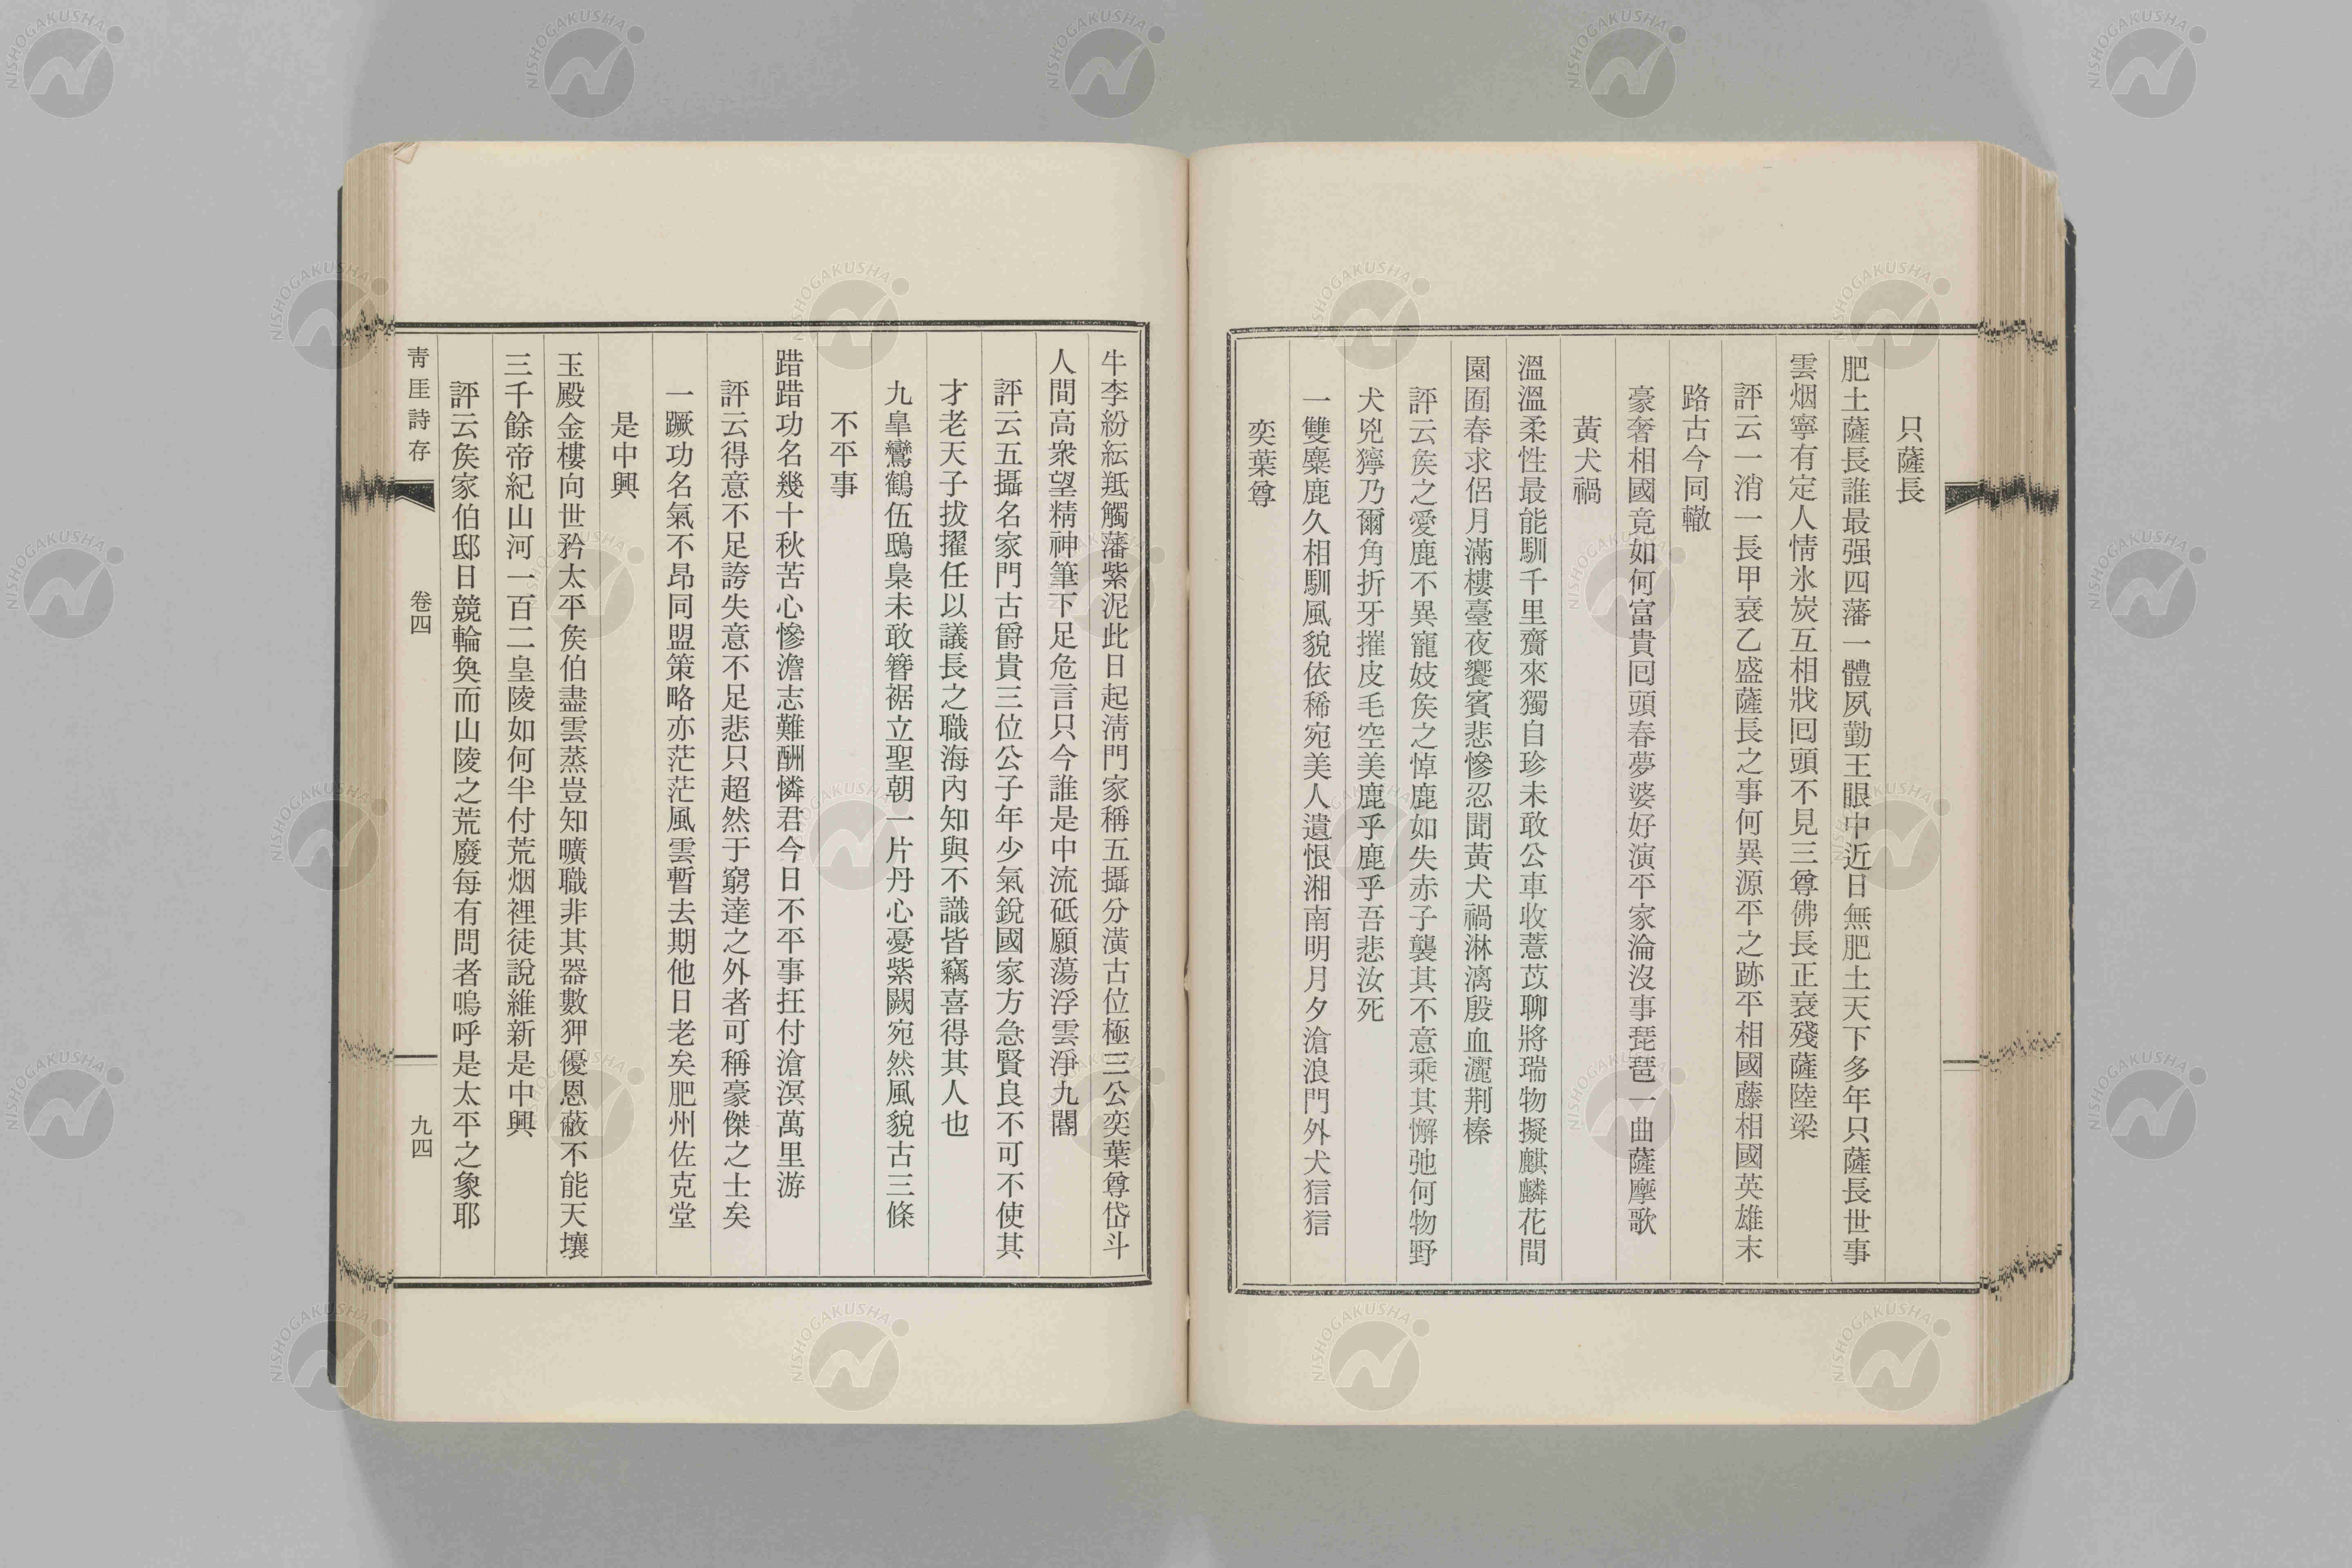 只薩長
肥土薩長誰最强四藩一體夙勤王眼中近日無肥土天下多年只薩長世事
雲烟寧有定人情氷炭互相戕囘頭不見三尊佛長正衰殘薩陸梁
評云一消一長甲衰乙盛薩長之事何異源平之跡平相國藤相國英雄末
路古今同轍
豪奢相國竟如何富貴囘頭春夢婆好演平家淪沒事琵琶一曲薩摩歌
黃犬禍
溫溫柔性最能馴千里齎來獨自珍未敢公車收薏苡聊將瑞物擬麒麟花間
園囿春求侶月滿樓臺夜饗賓悲慘忍聞黃犬禍淋漓殷血灑荆榛
評云矦之愛鹿不異寵妓矦之悼鹿如失赤子襲其不意乘其懈弛何物野
犬兇獰乃爾角折牙摧皮毛空美鹿乎鹿乎吾悲汝死
一雙麋鹿久相馴風貌依稀宛美人遺恨湘南明月夕滄浪門外犬狺狺
奕葉尊
牛李紛紜羝觸藩紫泥此日起淸門家稱五攝分潢古位極三公奕葉尊岱斗
人間高衆望精神筆下足危言只今誰是中流砥願蕩浮雲淨九閽
評云五攝名家門古爵貴三位公子年少氣銳國家方急賢良不可不使其
才老天子拔擢任以議長之職海內知與不識皆竊喜得其人也
九臯鸞鶴伍鴟梟未敢簪裾立聖朝一片丹心憂紫闕宛然風貌古三條
不平事
踖踖功名幾十秋苦心慘澹志難酬憐君今日不平事抂付滄溟萬里游
評云得意不足誇失意不足悲只超然于窮達之外者可稱豪傑之士矣
一蹶功名氣不昂同盟策略亦茫茫風雲暫去期他日老矣肥州佐克堂
是中興
玉殿金樓向世矜太平矦伯盡雲蒸豈知曠職非其器數狎優恩蔽不能天壤
三千餘帝紀山河一百二皇陵如何半付荒烟裡徒說維新是中興
評云矦家伯邸日競輪奐而山陵之荒廢每有問者嗚呼是太平之象耶
靑厓詩存
卷四
九四
NISHOGAKUSHA